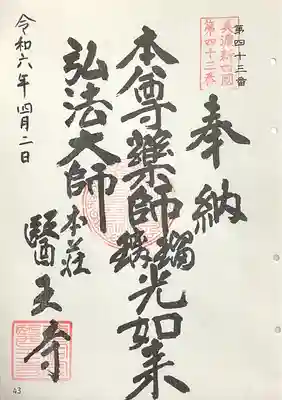 第四十三番
美濃新四国
第四十三番
奉納
本尊薬師瑠璃光如来
弘法大師
本荘
醫王寺
令和六年四月二日
43